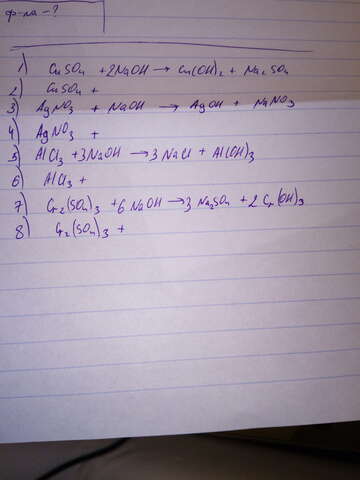 ф-ла - ?
1) CuSO4 + 2NaOH → Cu(OH)2 + Na2SO4
2) CuSO4 +
3) AgNO3 + NaOH → AgOH + NaNO3
4) AgNO3 +
5) AlCl3 + 3NaOH → 3NaCl + Al(OH)3
6) AlCl3 +
7) Cr2(SO4)3 + 6NaOH → 3Na2SO4 + 2Cr(OH)3
8) Cr2(SO4)3 +